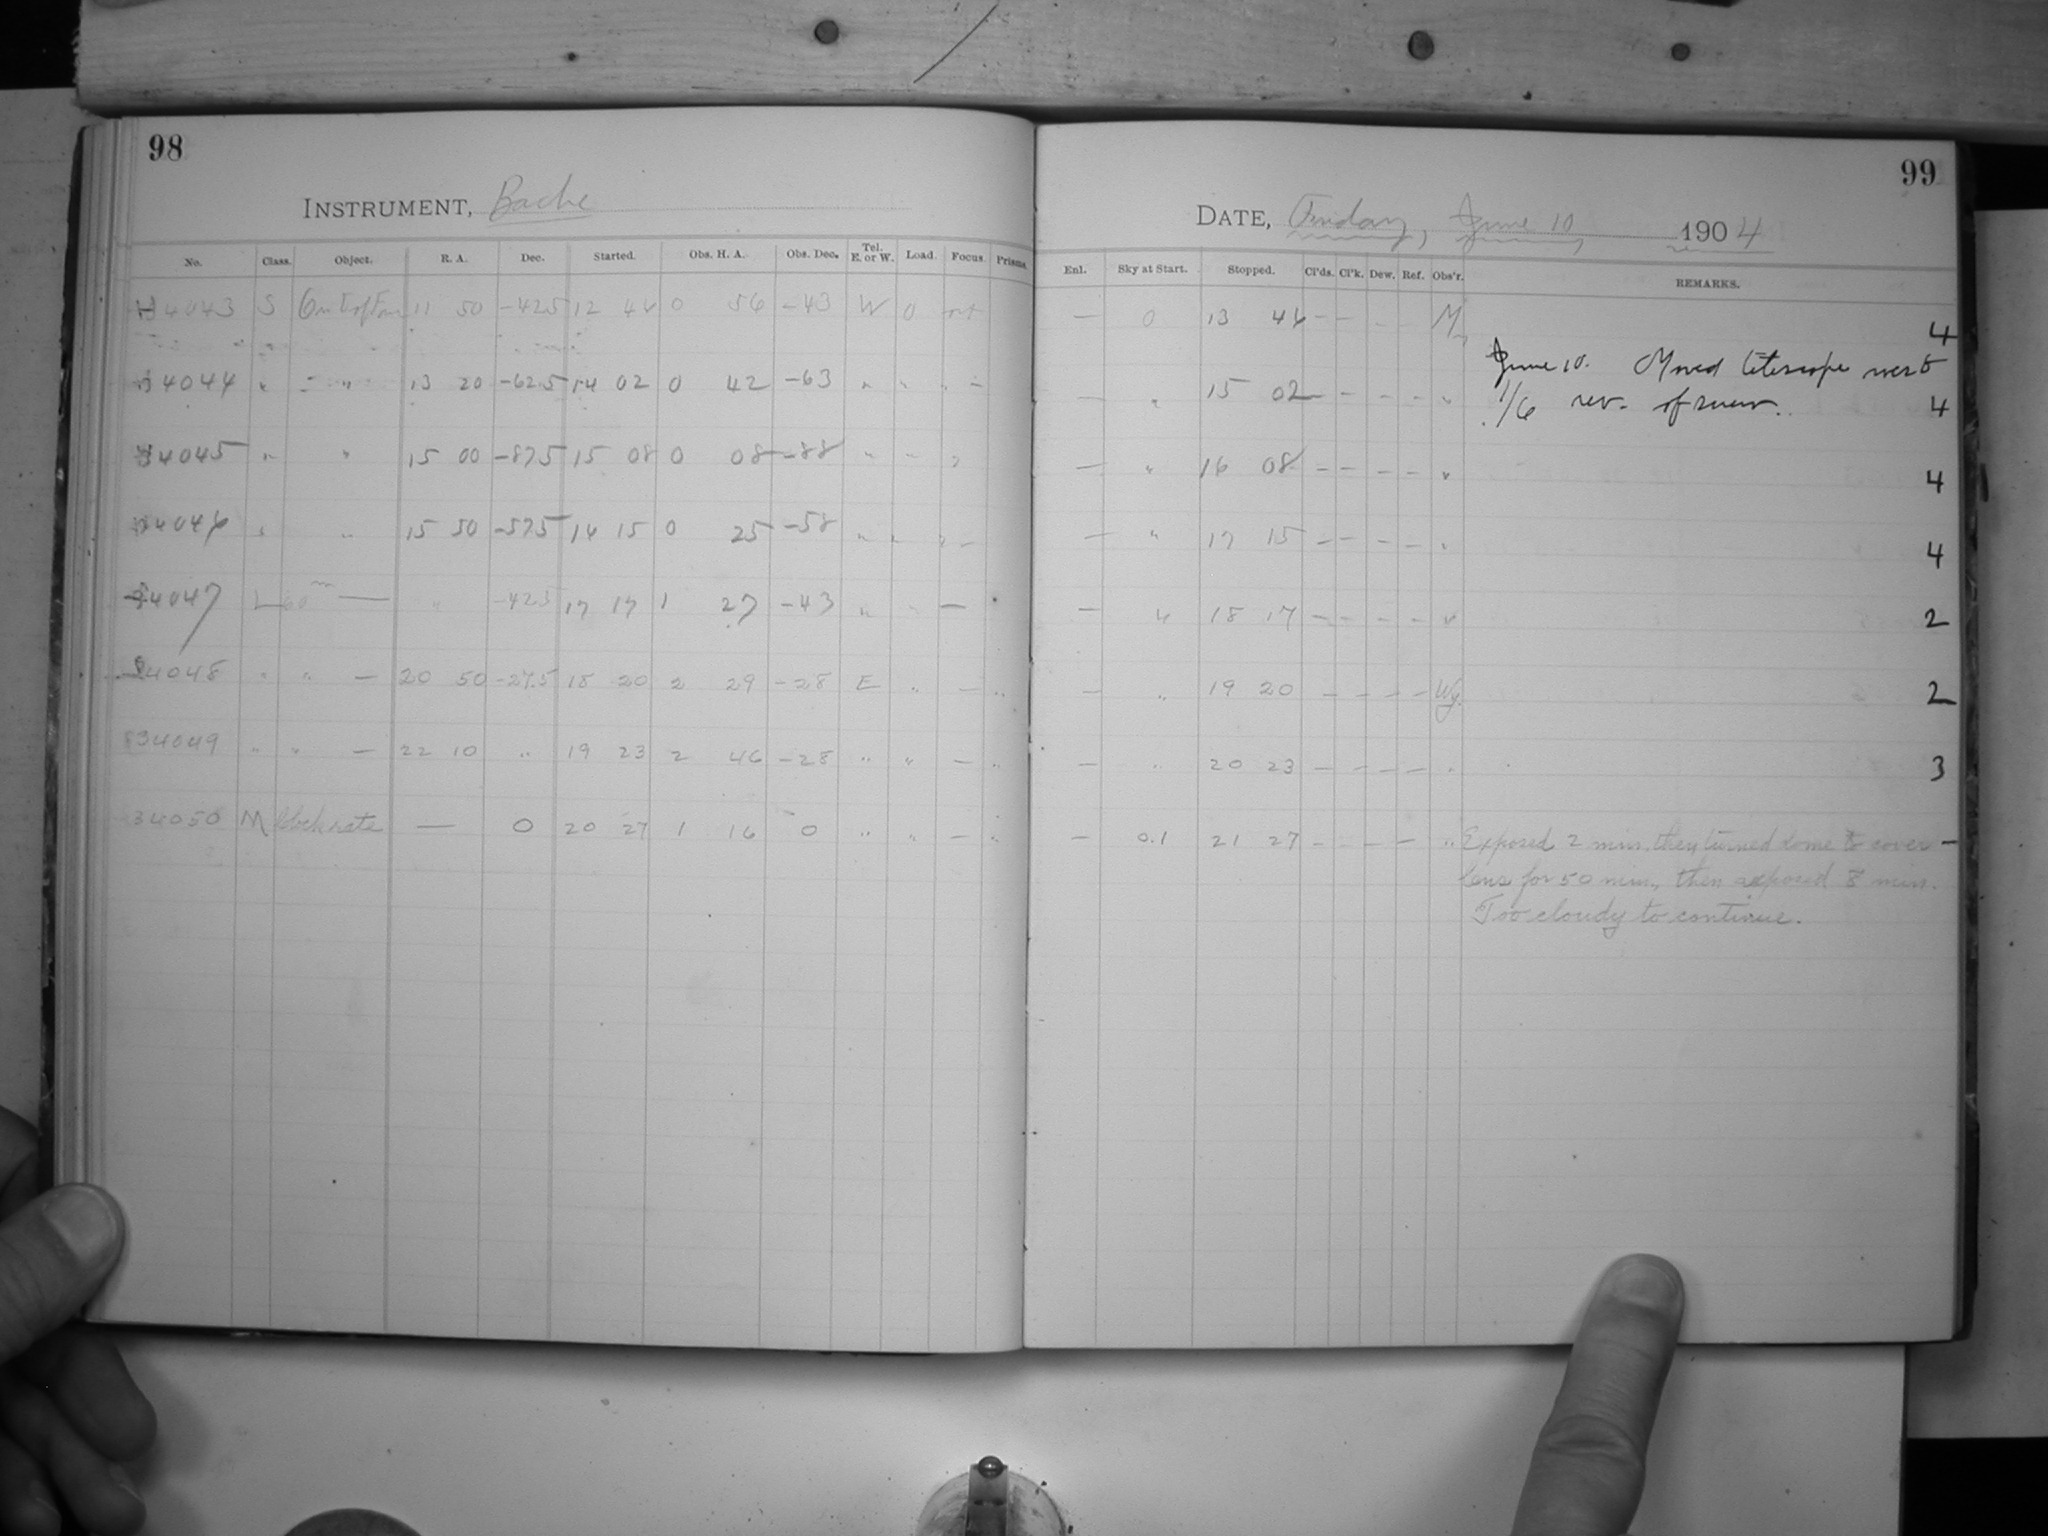 98
INSTRUMENT, Bache
No. Class. Object. R. A. Dec. Started. Obs. H. A. Obs. Dec. Tel. E. or W. Load. Focus. Prisms.
34043 S 11 50 -42.5 12 46 0 56 -43 W 0
34044 " — " 13 20 -62.5 14 02 0 42 -63 " " " —
34045 " " 15 00 -87.5 15 08 0 08 -88 " " "
34046 " " 15 50 -57.5 16 15 0 25 -58 " " " —
34047 L 60m — " -42.5 17 17 1 27 -43 " " —
34048 " " — 20 50 -27.5 18 20 2 29 -28 E " — "
34049 " " — 22 10 " 19 23 2 46 -28 " " — "
34050 M Clock rate — 0 20 27 1 16 0 " " — "
99
DATE, Friday, June 10, 1904
Enl. Sky at Start. Stopped. Cl'ds. Cl'k. Dew. Ref. Obs'r. REMARKS.
— 0 13 46 — — — M. 4
June 10. Moved telescope west
— " 15 02 — — — — " 1/6 rev. of screw. 4
— " 16 08 — — — — " 4
— " 17 15 — — — — " 4
— " 18 17 — — — — " 2
— " 19 20 — — — — Wy. 2
— " 20 23 — — — — " 3
— 0.1 21 27 — — — — " Exposed 2 min. then turned dome to cover —
lens for 50 min., then exposed 8 min.
Too cloudy to continue.